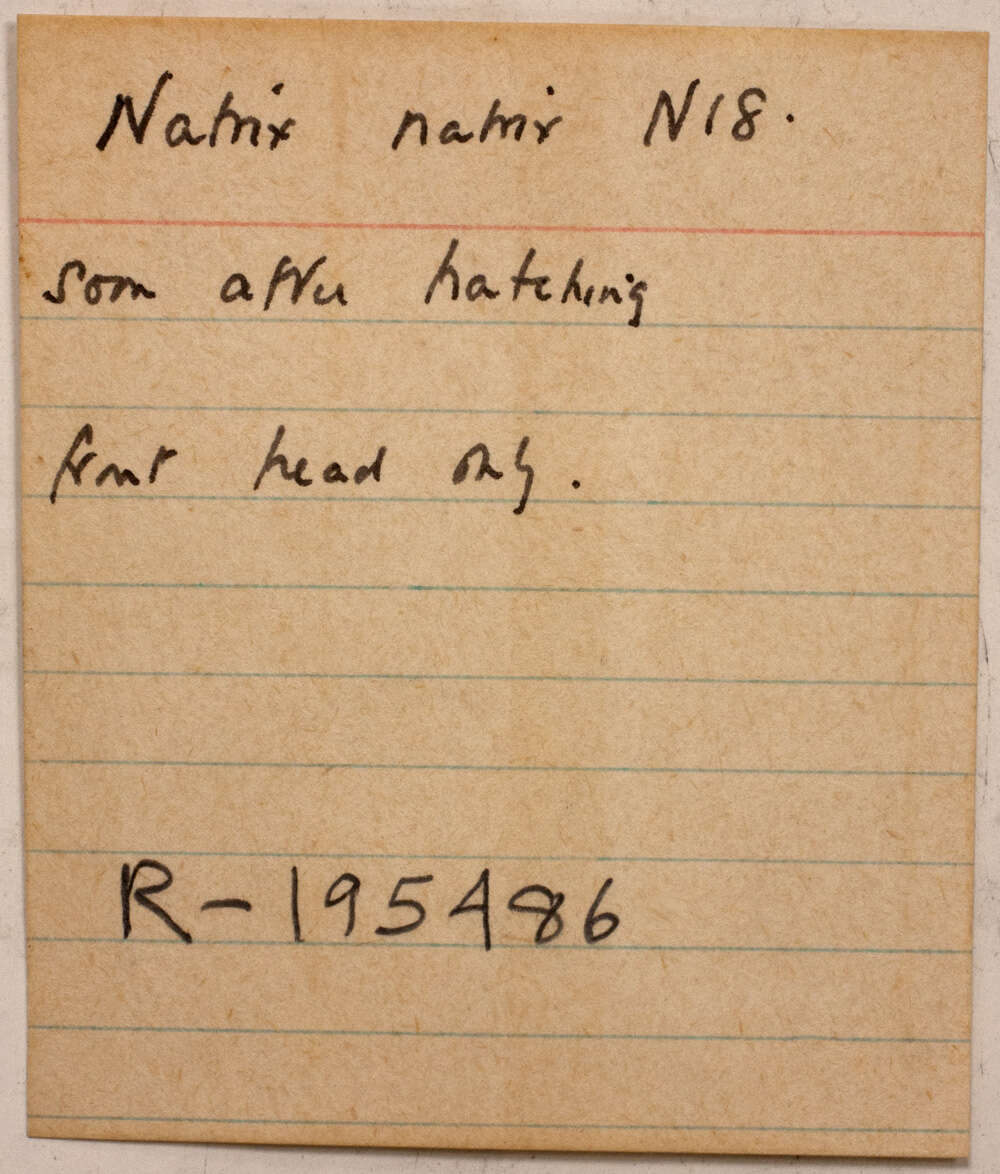 Natrix natrix N18.
soon after hatching
front head only.
R-195486